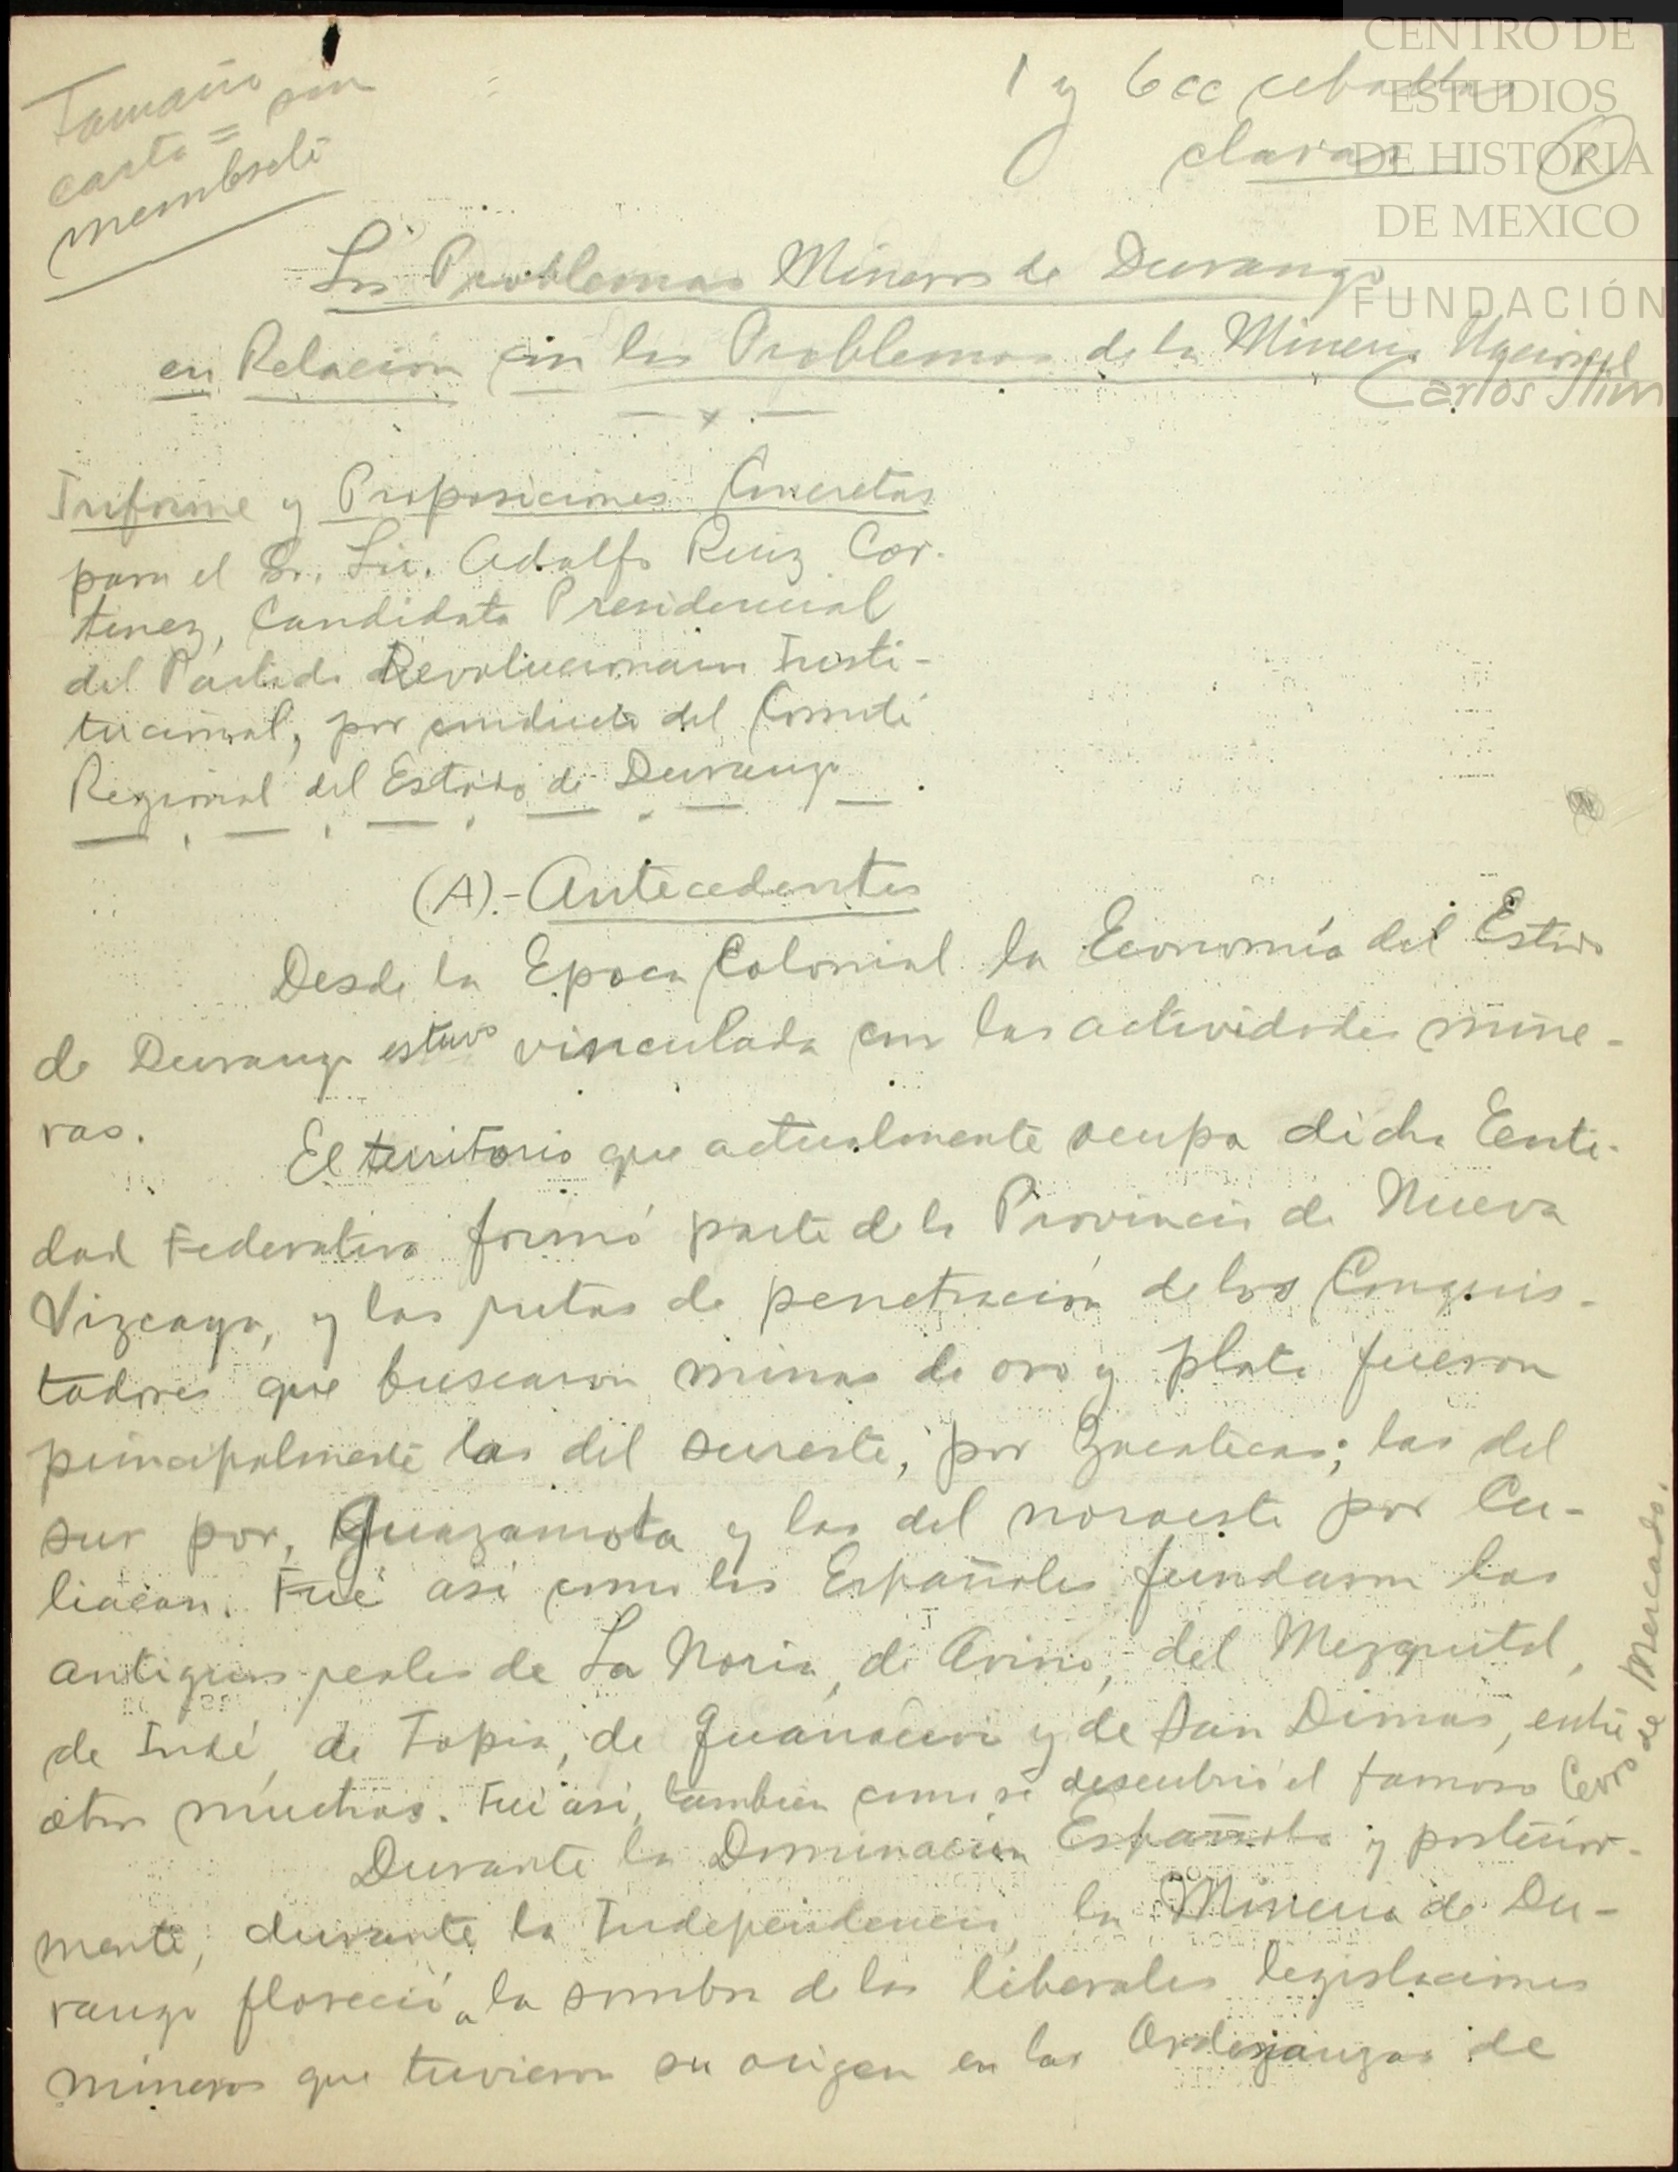 Tamaño
carta = sin
membrete
1 y 6 cc
claras
1
CENTRO DE
ESTUDIOS
DE HISTORIA
DE MEXICO
FUNDACIÓN
Carlos Slim
Los Problemas Mineros de Durango
en Relación con los Problemas de la Mineria Nacional
Informe y Proposiciones Concretas
para el Sr. Lic. Adolfo Ruiz Cor-
tinez, Candidato Presidencial
del Partido Revolucionario Insti-
tucional, por conducto del Comité
Regional del Estado de Durango.
(A).- Antecedentes
Desde la Epoca Colonial la Economía del Estado
de Durango estuvo vinculada con las actividades mine-
ras.
El territorio que actualmente ocupa dicha Enti-
dad Federativa formó parte de la Provincia de Nueva
Vizcaya, y las rutas de penetración de los Conquis-
tadores que buscaron minas de oro y plata fueron
principalmente las del sureste, por Zacatecas; las del
sur por, Guazamota y las del noroeste por Cu-
liacan. Fué asi como los Españoles fundaron los
antiguos reales de La Noria, de Avino, del Mezquital,
de Indé, de Topia, de Guanacevi y de San Dimas, entre
otros muchos. Fué asi, tambien como se descubrió el famoso Cerro de Mercado.
Durante la Dominacion Española y posterior-
mente, durante la Independencia, la Mineria de Du-
rango floreció a la sombra de las liberales legislaciones
mineras que tuvieron su origen en las Ordenanzas de